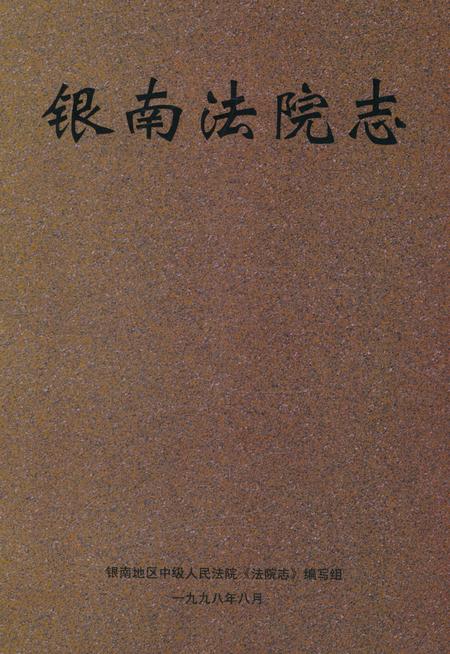 银南法院志
银南地区中级人民法院《法院志》编写组
一九九八年八月